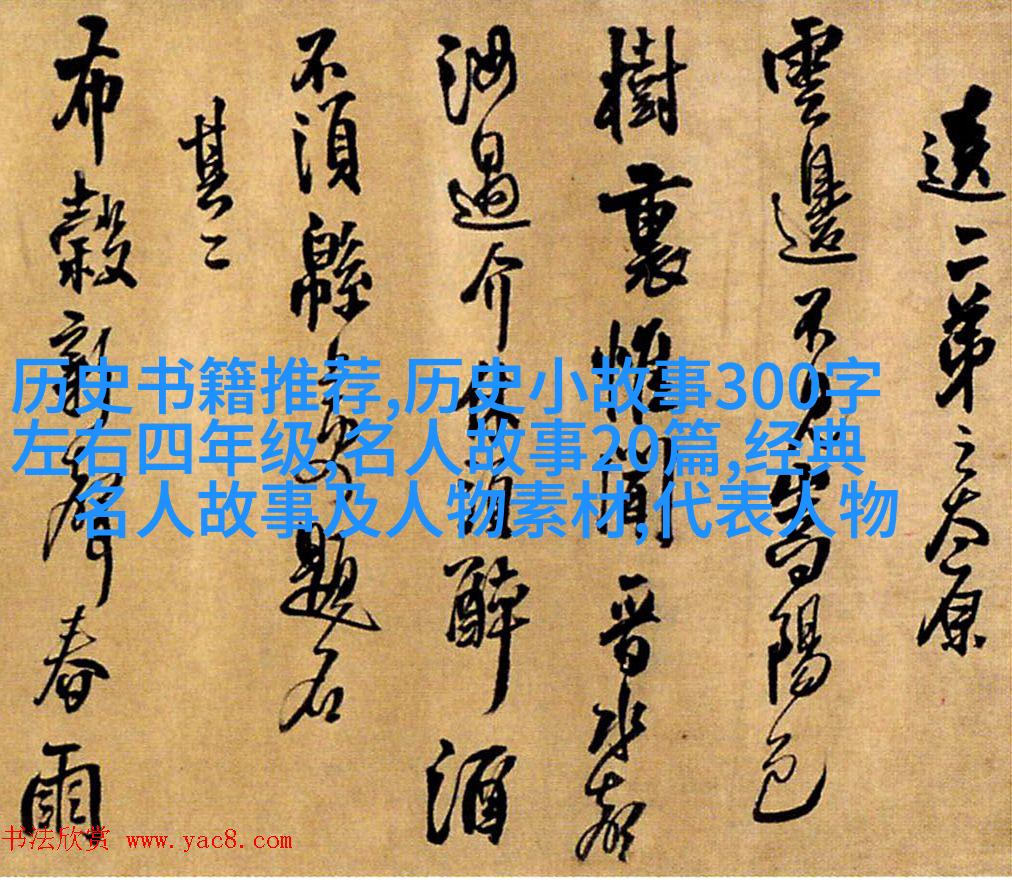 送二弟之太原
雲邊不見陽色
樹裏惟聞晋水聲
汝過介休須醉酒
不須綿上題名
其二
布穀新聲春雨
历史书籍推荐,历史小故事300字
左右四年级,名人故事20篇,经典
名人故事及人物素材,代表人物
书法欣赏 www.yac8.com